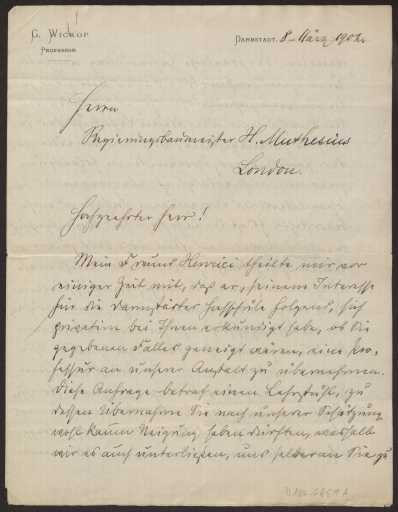 G. Wickop
Professor.
Darmstadt, 8. März 1902.
Herrn
Regierungsbaumeister H. Muthesius
London.
Hochgeehrter Herr!
Mein Freund Henrici theilte mir vor
einiger Zeit mit, daß er, seinem Interesse
für die Darmstädter Hochschule folgend, sich
privatim bei Ihnen erkundigt habe, ob Sie
gegebenen Falles geneigt wären, eine Pro-
fessur an unserer Anstalt zu übernehmen.
Diese Anfrage betraf einen Lehrstuhl, zu
dessen Übernahme Sie nach unserer Schätzung
wohl kaum Neigung haben dürften, weshalb
wir es auch unterließen, uns selber an Sie zu